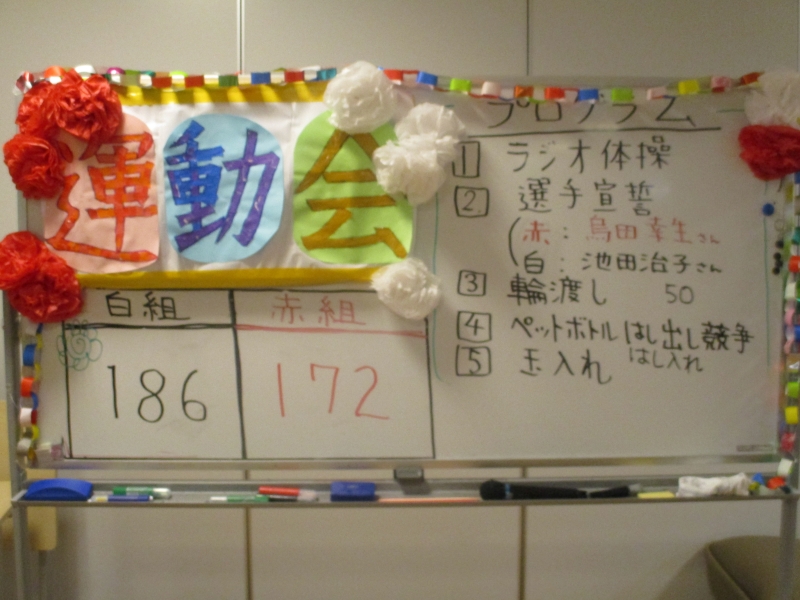 運動会
白組 赤組
186 172
プログラム
1 ラジオ体操
2. 選手宣誓
(赤: 鳥田幸生さん
白: 池田治子さん
3 輪渡し 50
4 ペットボトルはし出し競争
はし入れ
5 玉入れ